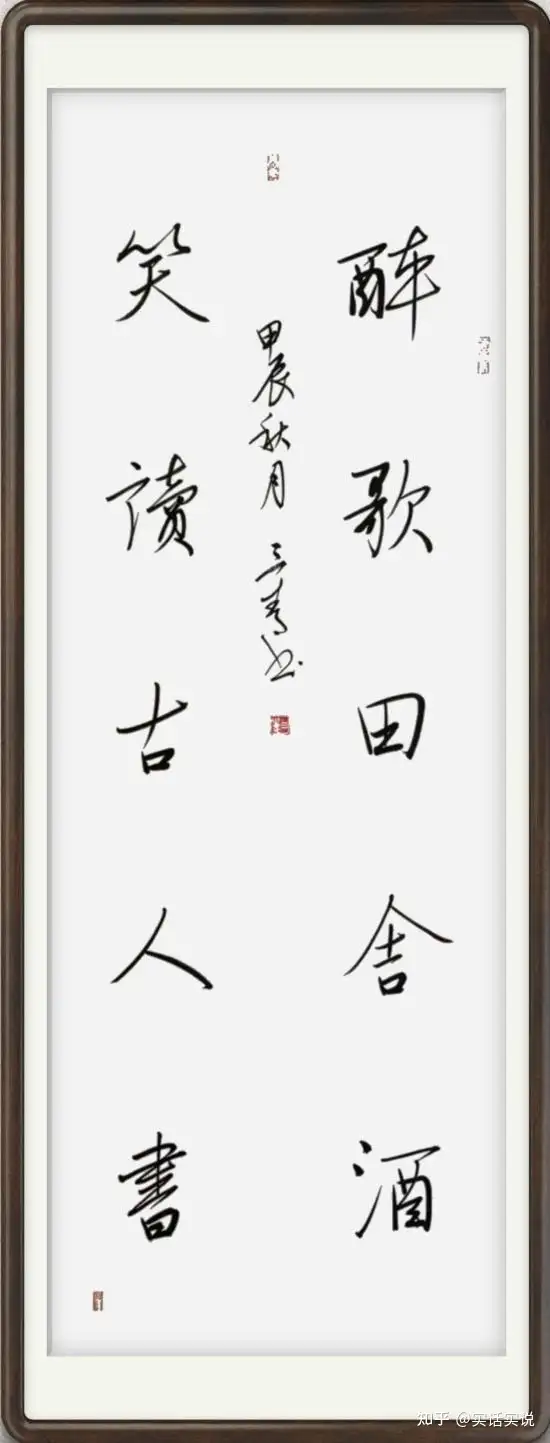 醉歌田舍酒
笑讀古人書
甲辰秋月 三青书
知乎 @实话实说